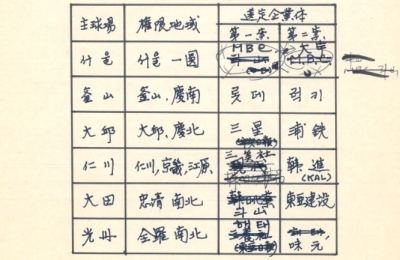 主球場 權限地域 選定企業体
第一案 第二案
서울 서울 一圓 MBC 大宇
M.B.C
釜山 釜山, 慶南 롯데 럭키
大邱 大邱, 慶北 三星 浦鉄
仁川 仁川, 京畿, 江原 三美社 韓進
(KAL)
大田 忠清 南北 斗山 東亞建設
光州 全羅 南北 해태
味元